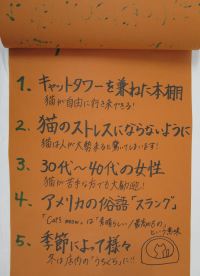 1. キャットタワーを兼ねた本棚
猫が自由に行き来できる!
2. 猫のストレスにならないように
猫は人が大勢来ると驚いてしまいます!
3. 30代〜40代の女性
猫が苦手な方でも大歓迎!
4. アメリカの俗語「スラング」
「Cat's meow」は「素晴らしい/最高の」
という意味
5. 季節によって様々
冬は店内の「うちくら」に!!